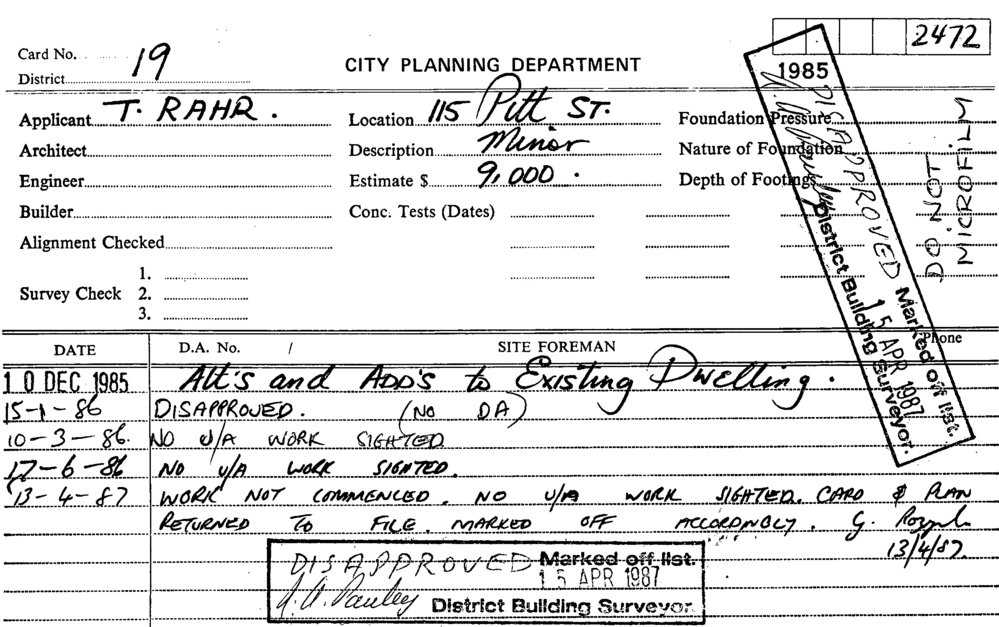 2472
Card No.
19
District
CITY PLANNING DEPARTMENT
1985
Applicant T. RAHR.
Location 115 Pitt ST.
Foundation Pressure
Architect
Description Minor
Nature of Foundation
Engineer
Estimate $ 9,000.
Depth of Footings
Builder
Conc. Tests (Dates)
Alignment Checked
Survey Check
1.
2.
3.
DISAPPROVED Marked off list.
15 APR 1987
District Building Surveyor.
DO NOT
MICROFILM
DATE D.A. No. / SITE FOREMAN Phone
10 DEC 1985 Alt's and ADD'S to Existing Dwelling.
15-1-86 DISAPPROVED. (NO DA)
10-3-86. NO U/A WORK SIGHTED
17-6-86 NO U/A WORK SIGHTED.
13-4-87 WORK NOT COMMENCED. NO U/A WORK SIGHTED. CARD & PLAN
RETURNED TO FILE. MARKED OFF ACCORDINGLY. G.
13/4/87.
DISAPPROVED Marked off list.
15 APR 1987
District Building Surveyor.